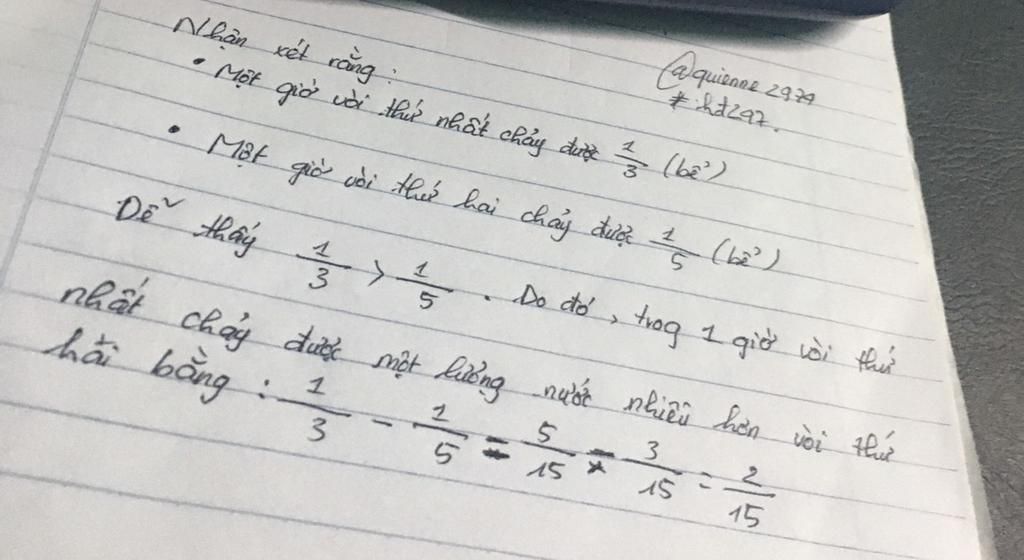 Nhận xét rằng:
@quienne2979
#:hd297.
• Một giờ vòi thứ nhất chảy được 1/3 (bể)
• Một giờ vòi thứ hai chảy được 1/5 (bể)
Dễ thấy 1/3 > 1/5. Do đó, trog 1 giờ vòi thứ
nhất chảy được một lượng nước nhiều hơn vòi thứ
hai bằng: 1/3 - 1/5 = 5/15 - 3/15 = 2/15